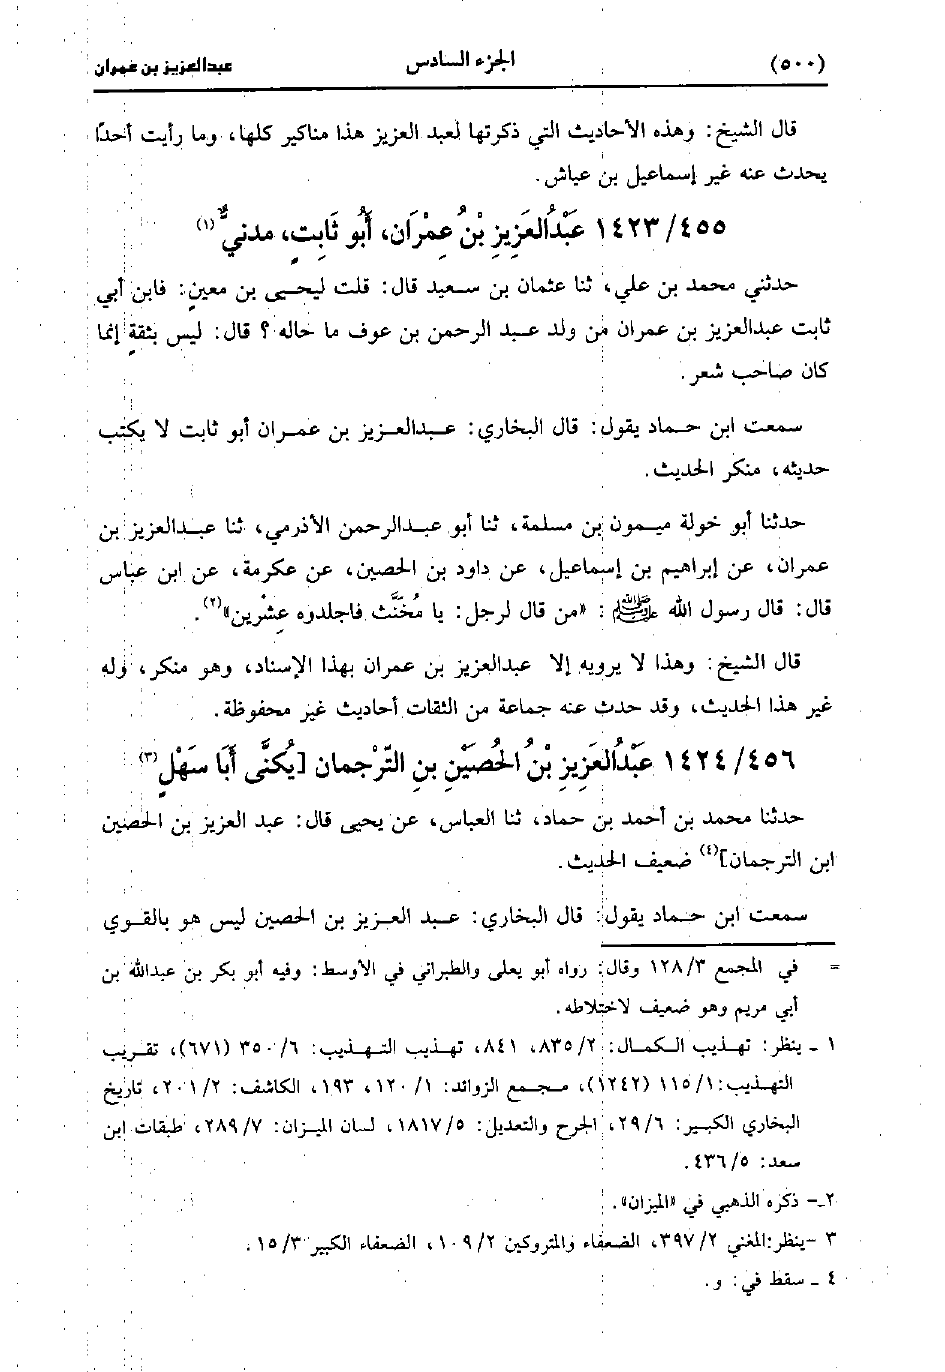 (٥٠٠) الجزء السادس عبدالعزيز بن عمران
قال الشيخ: وهذه الأحاديث التي ذكرتها لعبد العزيز هذا مناكير كلها، وما رأيت أحدًا
يحدث عنه غير إسماعيل بن عياش.
١٤٢٣/٤٥٥ عَبْدُالعَزِيزِ بْنُ عِمْرَان، أَبُو ثَابِتٍ، مدنيٌّ(١)
حدثني محمد بن علي، ثنا عثمان بن سعيد قال: قلت ليحيى بن معينٍ: فابن أبي
ثابت عبدالعزيز بن عمران من ولد عبد الرحمن بن عوف ما حاله؟ قال: ليس بثقةٍ إنما
كان صاحب شعر.
سمعت ابن حماد يقول: قال البخاري: عبدالعزيز بن عمران أبو ثابت لا يكتب
حديثه، منكر الحديث.
حدثنا أبو خولة ميمون بن مسلمة، ثنا أبو عبدالرحمن الأذرمي، ثنا عبدالعزيز بن
عمران، عن إبراهيم بن إسماعيل، عن داود بن الحصين، عن عكرمة، عن ابن عباس
قال: قال رسول الله ﷺ: «من قال لرجل: يا مُخَنَّث فاجلدوه عِشْرين»(٢).
قال الشيخ: وهذا لا يرويه إلا عبدالعزيز بن عمران بهذا الإسناد، وهو منكر، وله
غير هذا الحديث، وقد حدث عنه جماعة من الثقات أحاديث غير محفوظة.
١٤٢٤/٤٥٦ عَبْدُالعَزِيزِ بْنُ الحُصَيْنِ بنِ التَّرْجمان [يُكنَّى أَبَا سَهْلٍ(٣)
حدثنا محمد بن أحمد بن حماد، ثنا العباس، عن يحيى قال: عبد العزيز بن الحصين
ابن الترجمان](٤) ضعيف الحديث.
سمعت ابن حماد يقول: قال البخاري: عبد العزيز بن الحصين ليس هو بالقوي
= في المجمع ١٢٨/٣ وقال: رواه أبو يعلى والطبراني في الأوسط: وفيه أبو بكر بن عبدالله بن
أبي مريم وهو ضعيف لاختلاطه.
١ ـ ينظر: تهذيب الكمال: ٨٣٥/٢، ٨٤١، تهذيب التهذيب: ٣٥٠/٦ (٦٧١)، تقريب
التهذيب: ١١٥/١ (١٢٤٢)، مجمع الزوائد: ١٢٠/١، ١٩٣، الكاشف: ٢٠١/٢، تاريخ
البخاري الكبير: ٢٩/٦، الجرح والتعديل: ١٨١٧/٥، لسان الميزان: ٢٨٩/٧، طبقات ابن
سعد: ٤٣٦/٥.
٢ـ– ذكره الذهبي في «الميزان».
٣ –ينظر:المغني ٣٩٧/٢، الضعفاء والمتروكين ١٠٩/٢، الضعفاء الكبير ١٥/٣.
٤ ـ سقط في: و.